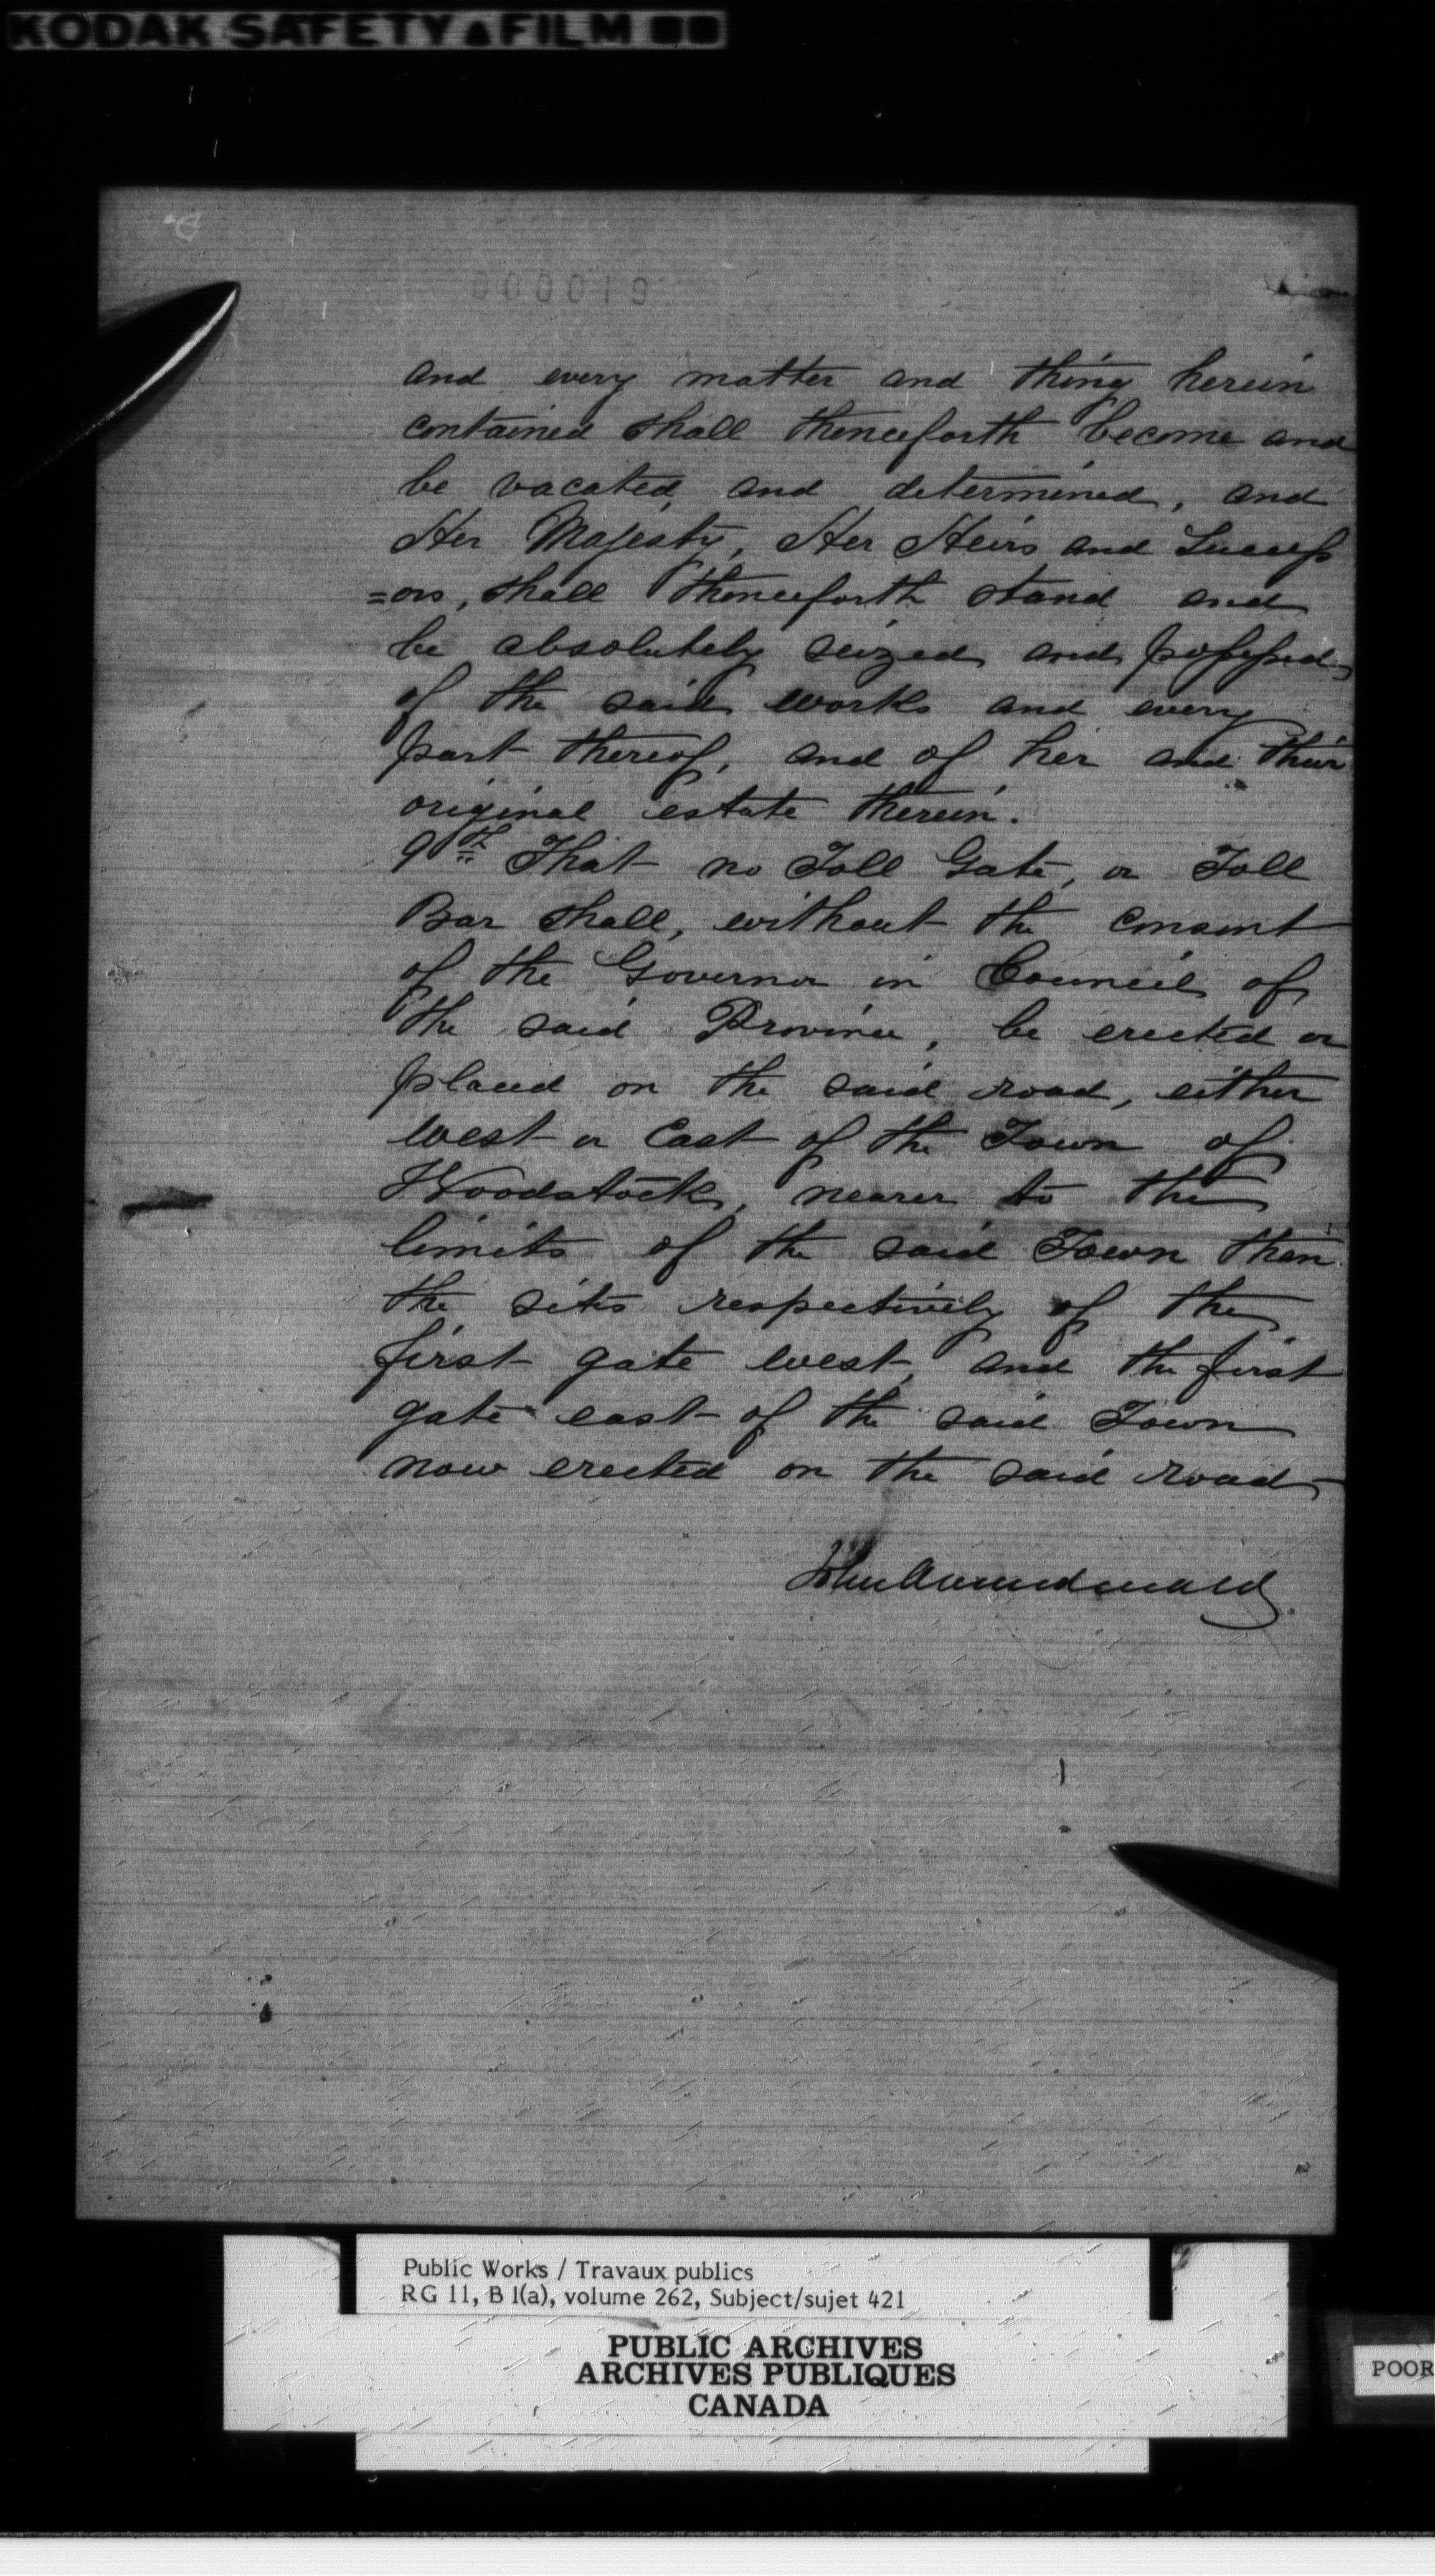 KODAK SAFETY FILM
000019
and every matter and thing herein
contained shall thenceforth become and
be vacated and determined, and
Her Majesty, Her Heirs and Success
=ors, shall thenceforth stand and
be absolutely seized and possessed
of the said works and every
part thereof, and of her and their
original estate therein.
9th That no Toll Gate, or Toll
Bar shall, without the consent
of the Governor in Council of
the said Province, be erected or
placed on the said road, either
west or East of the Town of
Woodstock, nearer to the
limits of the said Town than
the sites respectively of the
first gate west, and the first
gate east of the said Town
now erected on the said road
Public Works / Travaux publics
RG 11, B 1(a), volume 262, Subject/sujet 421
PUBLIC ARCHIVES
ARCHIVES PUBLIQUES
CANADA
POOR